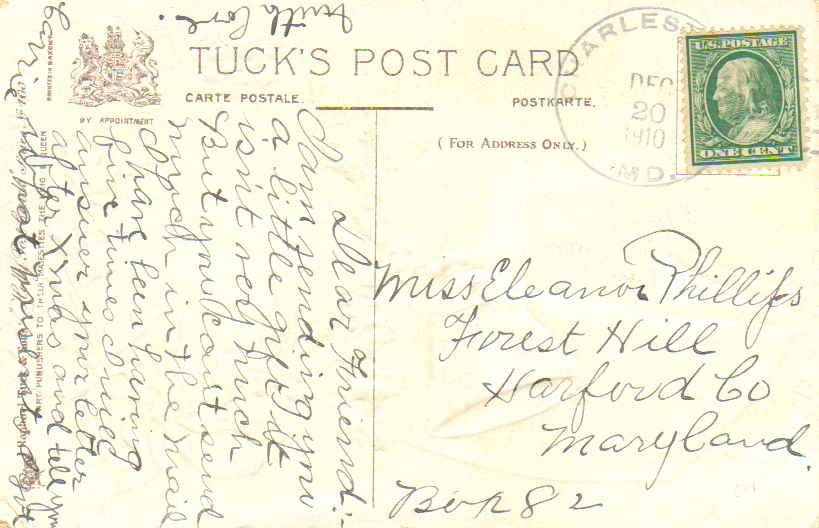 TUCK'S POST CARD
CARTE POSTALE.
POSTKARTE.
BY APPOINTMENT
(FOR ADDRESS ONLY.)
CHARLEST
DEC
20
1910
MD.
U.S. POSTAGE
ONE CENT
Miss Eleanor Phillips
Forest Hill
Harford Co
Maryland.
Box 82
Dear Friend:-
I am sending you
a little gift. It
isn't very much
But you can't send
much in the mail
I have been having
fine times. I will
answer your letter
after Xmas and tell you
what
Carrie
with love.
PRINTED IN SAXONY
ART PUBLISHERS TO THEIR MAJESTIES THE KING & QUEEN
Raphael Tuck & Sons'